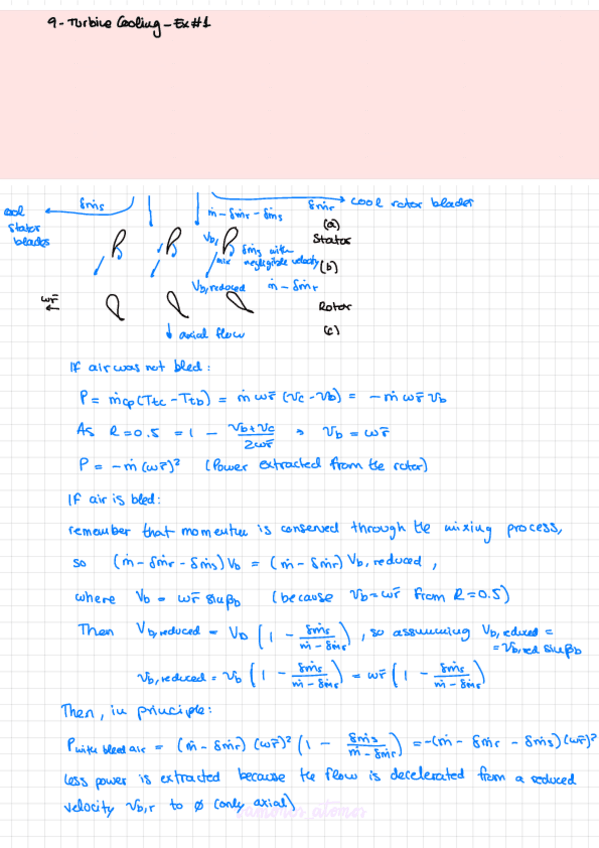 9 - Turbine Cooling - Ex#1
δṁs
ṁ - δṁr - δṁs
δṁr
cool rotor blades
cool
stator
blades
(a)
Stator
Vb,
δṁs with
mix negligible velocity
(b)
Vb,reduced ṁ - δṁr
ωr̄
Rotor
axial flow
(c)
If air was not bled:
P = ṁcp(Ttc - Ttb) = ṁ ωr̄ (vc - vb) = - ṁ ωr̄ vb
As R = 0.5 = 1 - (vb + vc)/(2ωr̄) → vb = ωr̄
P = - ṁ (ωr̄)² (Power extracted from the rotor)
If air is bled:
remember that momentum is conserved through the mixing process,
so (ṁ - δṁr - δṁs) Vb = (ṁ - δṁr) Vb,reduced,
where Vb = ωr̄ sinβb (because vb = ωr̄ from R = 0.5)
Then Vb,reduced = Vb (1 - δṁs/(ṁ - δṁr)), so assumming Vb,educed =
= Vb,red sinβb
vb,reduced = vb (1 - δṁs/(ṁ - δṁr)) = ωr̄ (1 - δṁs/(ṁ - δṁr))
Then, in principle:
Pwith bleed air = (ṁ - δṁr) (ωr̄)² (1 - δṁs/(ṁ - δṁr)) = -(ṁ - δṁr - δṁs)(ωr̄)²
less power is extracted because the flow is decelerated from a reduced
velocity vb,r to ø (only axial)